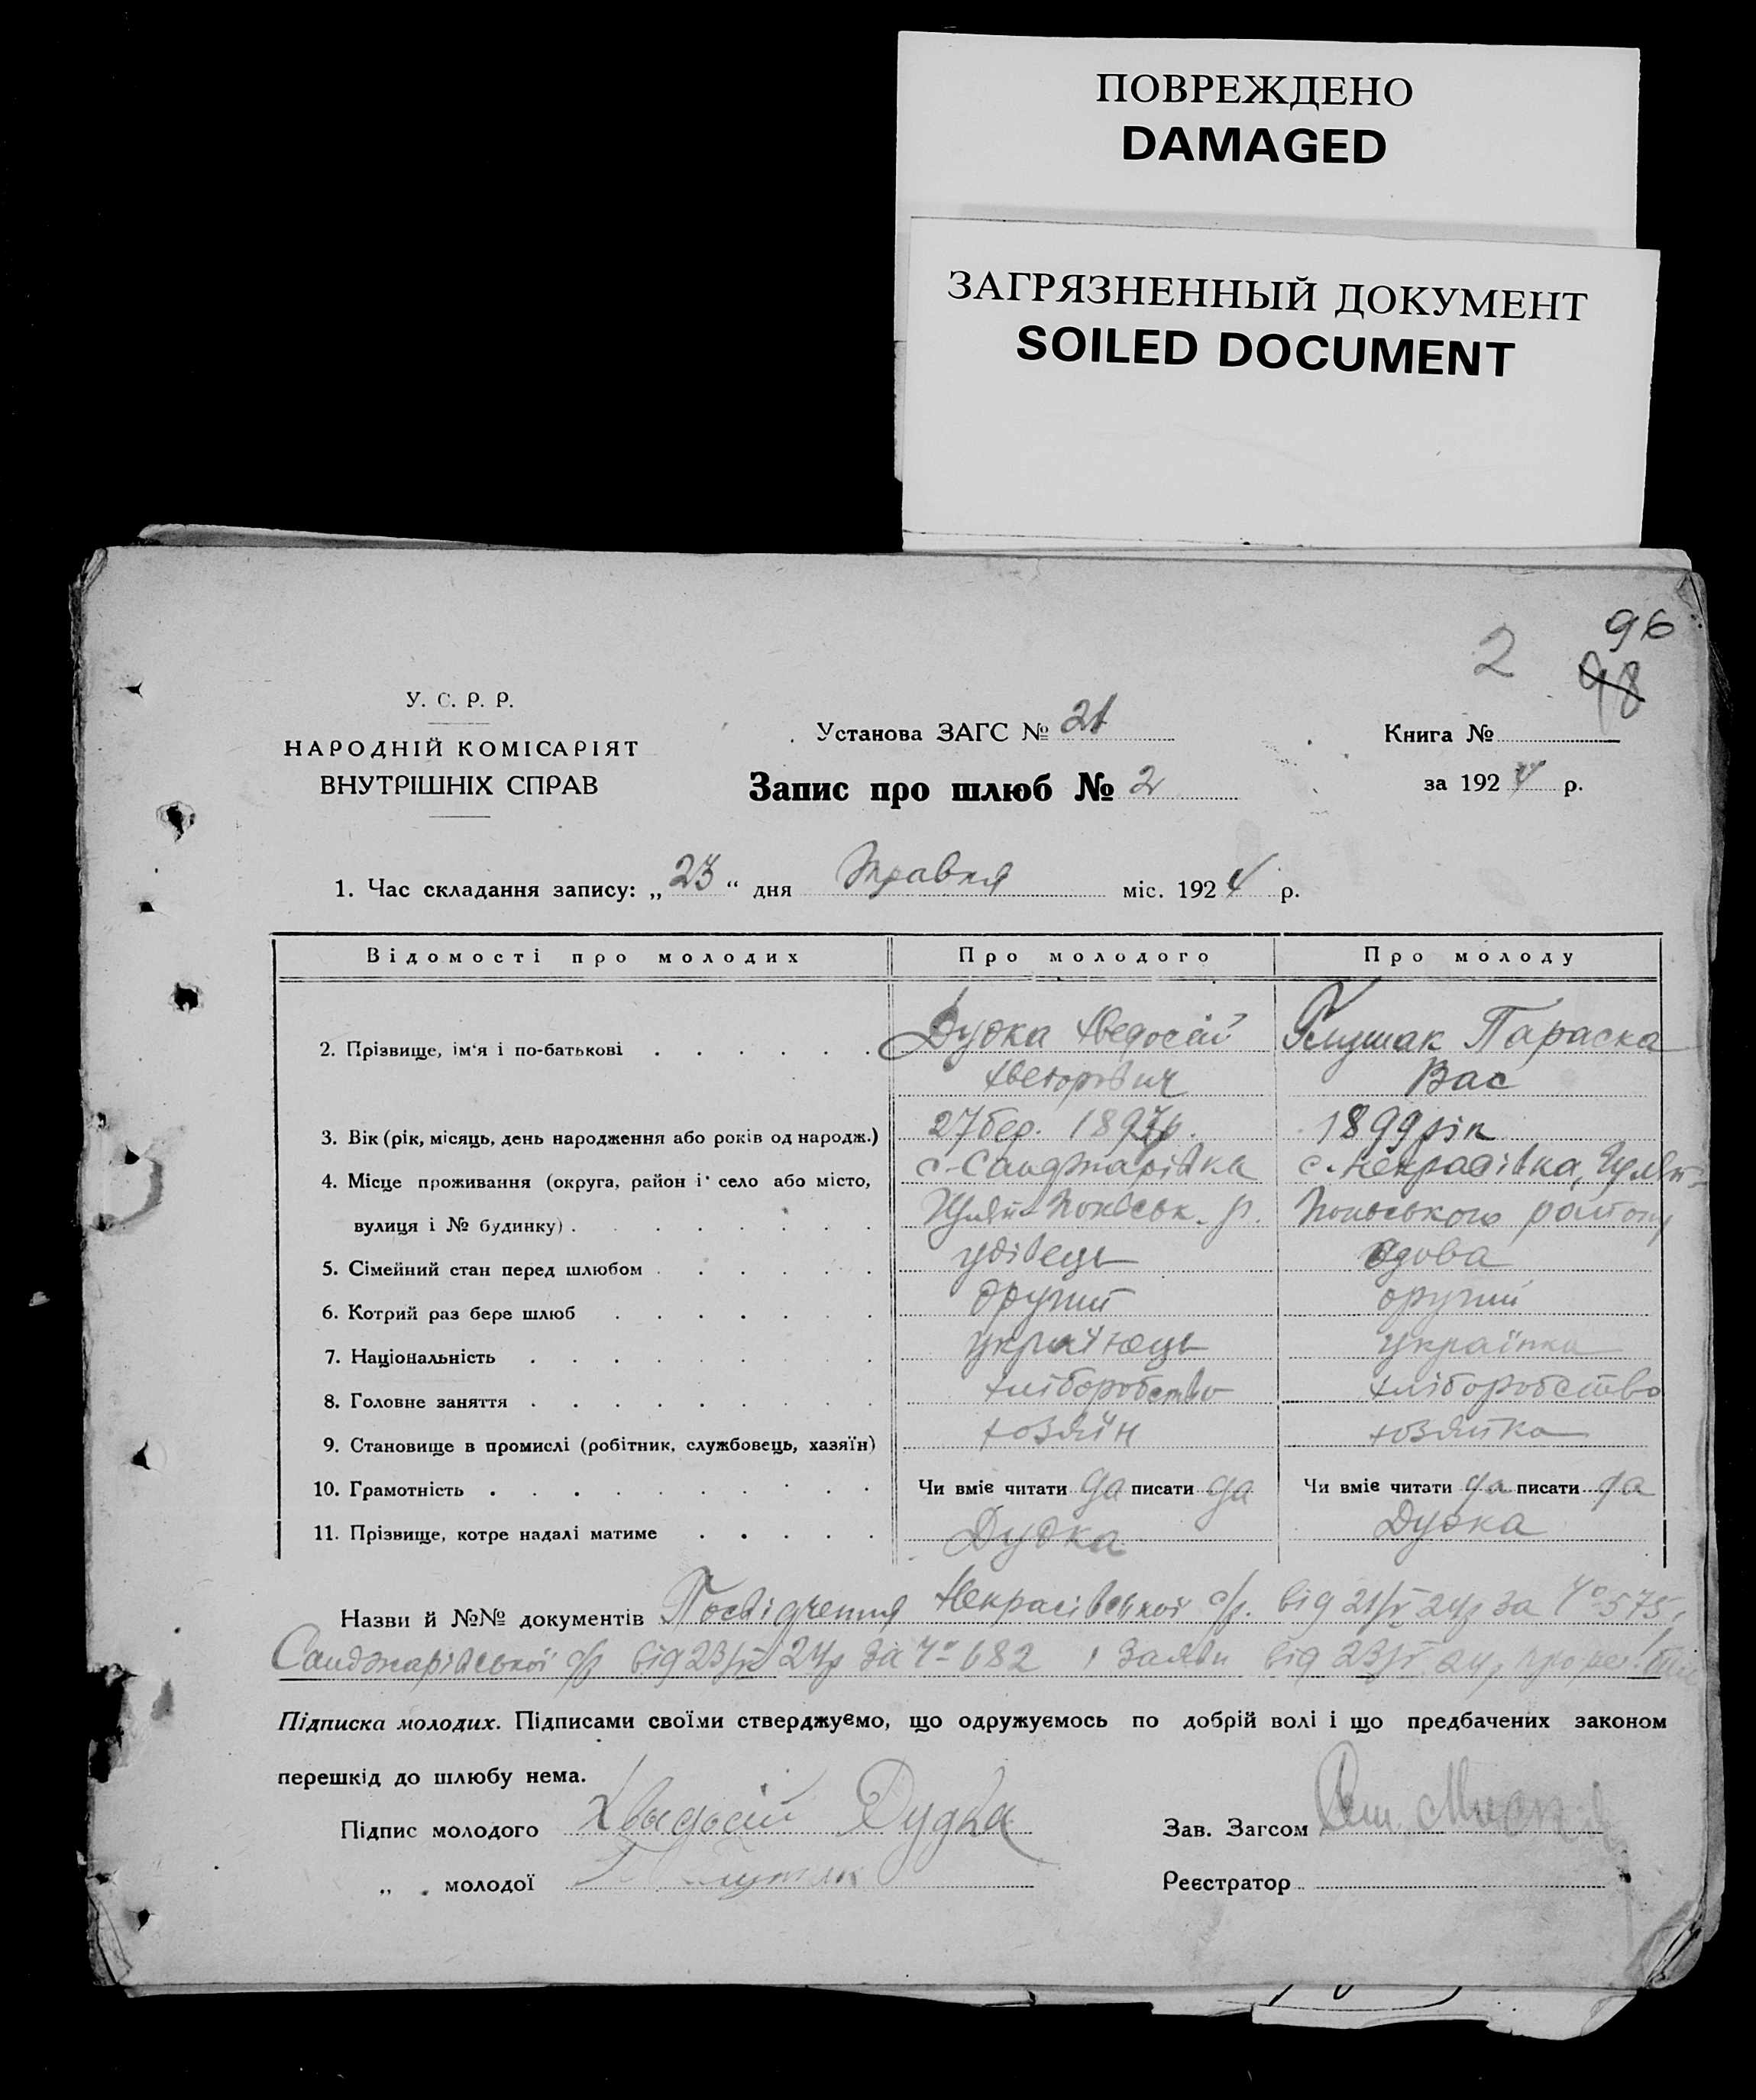 ПОВРЕЖДЕНО
DAMAGED
ЗАГРЯЗНЕННЫЙ ДОКУМЕНТ
SOILED DOCUMENT
96
2 98
У. С. Р. Р.
НАРОДНІЙ КОМІСАРІЯТ
ВНУТРІШНІХ СПРАВ
Установа ЗАГС № 21
Запис про шлюб № 2
Книга №
за 1924 р.
1. Час складання запису: „23“ дня Травня міс. 1924 р.
Відомості про молодих Про молодого Про молоду
2. Прізвище, ім'я і по-батькові Дудка Хведосій Глушак Параска
Хведорович Вас
3. Вік (рік, місяць, день народження або років од народж.) 27 бер. 1897р. 1899 рік
4. Місце проживання (округа, район і село або місто, с. Санджарівка с. Некрасівка, Гуляй-
вулиця і № будинку) Гуляй-Покський. р. Польського району
5. Сімейний стан перед шлюбом удівець вдова
6. Котрий раз бере шлюб другий другий
7. Національність українець українка
8. Головне заняття хліборобство хліборобство
9. Становище в промислі (робітник, службовець, хазяїн) хозяїн хозяйка
10. Грамотність Чи вміє читати да писати да Чи вміє читати да писати да
11. Прізвище, котре надалі матиме Дудка Дудка
Назви й №№ документів Посвідчення Некрасівської с/р. від 21/V 24р за № 575,
Санджарівської с/р від 23/V 24р за № 682, заяви від 23/V 24р про
Підписка молодих. Підписами своїми стверджуємо, що одружуємось по добрій волі і що предбачених законом
перешкід до шлюбу нема.
Підпис молодого Хвыдосій Дудка
Зав. Загсом
„ молодої Глушак
Реєстратор